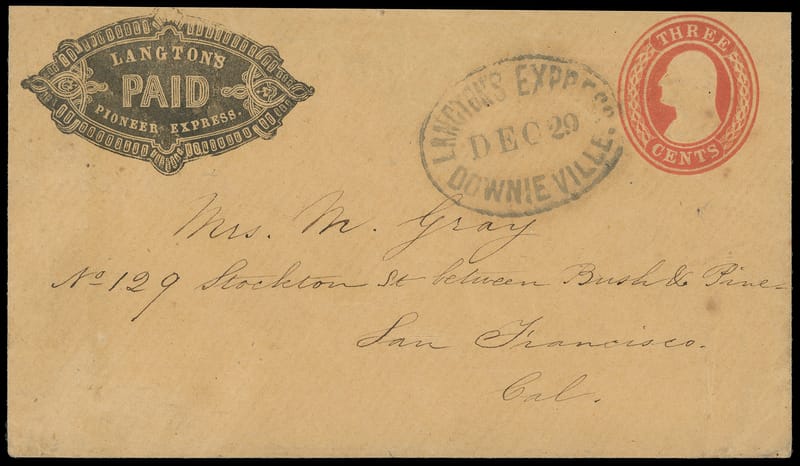 LANGTON'S
PAID
PIONEER EXPRESS.
LANGTON'S EXPRESS
DEC 29
DOWNIEVILLE.
THREE
CENTS
Mrs. M. Gray
No 129 Stockton St between Bush & Pine
San Francisco.
Cal.